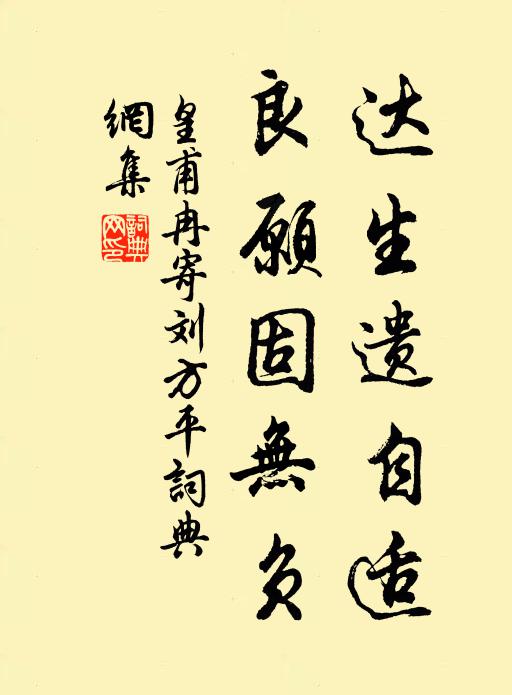 达生遗自适
良愿固無负
皇甫冉寄刘方平詞典
網集
詞典
网印